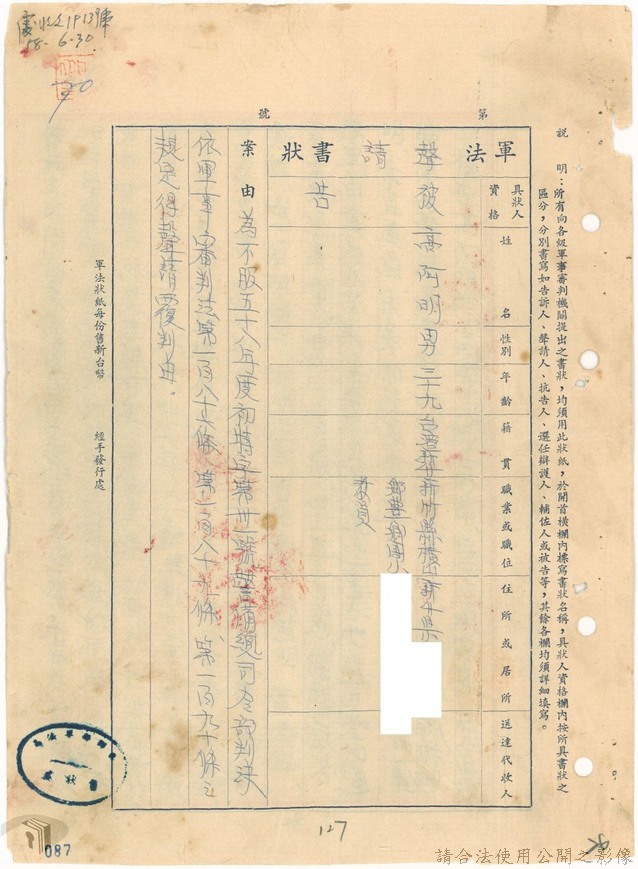 處收文1913號
58.6.30
第　　　號
說　明：所有向各級軍事審判機關提出之書狀，均須用此狀紙，於開首橫欄內標寫書狀名稱，具狀人資格欄內按所具書狀之
區分，分別書寫如告訴人、聲請人、抗告人、選任辯護人、輔佐人或被告等，其餘各欄均須詳細填寫。
軍法 聲請 書狀
具狀人資格
姓名
性別
年齡
籍貫
職業或職位
住所或居所
送達代收人
被告
高阿明
男
三十九
台灣新竹
新竹縣橫山鄉豐鄉國小教員
新竹縣
案由
為不服五十八年度初特字第卅一號警備總司令部判決
依軍事審判法第一百八十六條、第一百八十九條、第一百九十條之
規定得聲請覆判由。
軍法狀紙每份售新台幣
經手發行處
書狀
127
087
請合法使用公開之影像